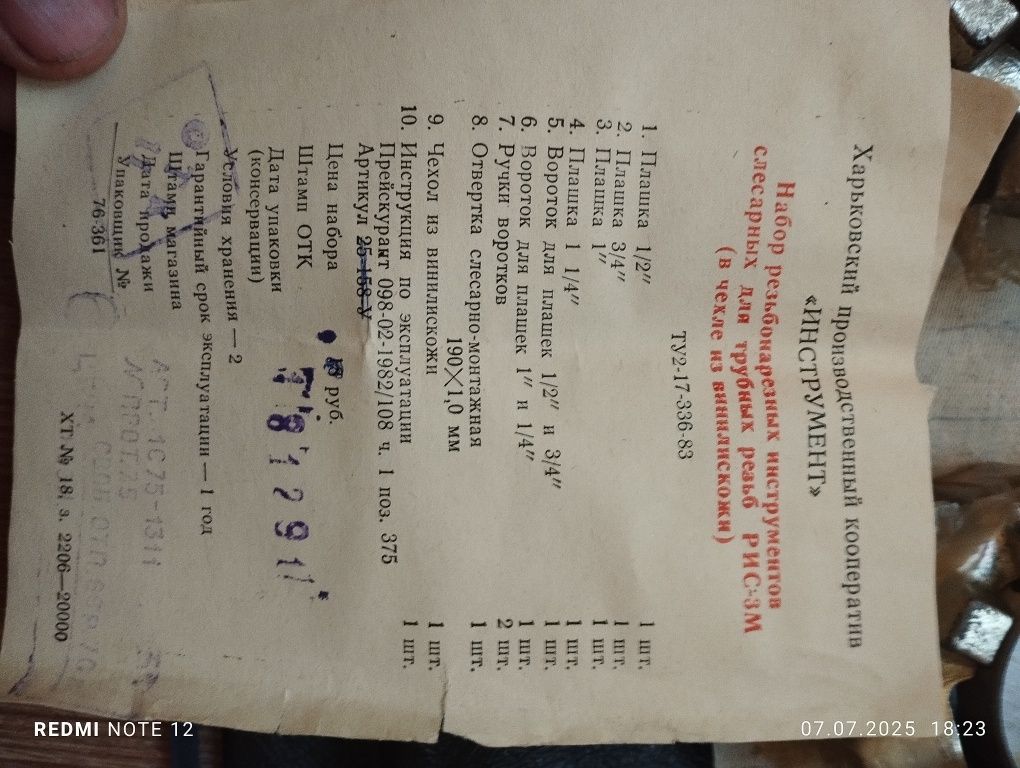 Харьковский производственный кооператив
«ИНСТРУМЕНТ»
Набор резьбонарезных инструментов
слесарных для трубных резьб РИС-3М
(в чехле из винилискожи)
ТУ2-17-336-83
1. Плашка 1/2" 1 шт.
2. Плашка 3/4" 1 шт.
3. Плашка 1" 1 шт.
4. Плашка 1 1/4" 1 шт.
5. Вороток для плашек 1/2" и 3/4" 1 шт.
6. Вороток для плашек 1" и 1/4" 1 шт.
7. Ручки воротков 2 шт.
8. Отвертка слесарно-монтажная
190×1,0 мм 1 шт.
9. Чехол из винилискожи 1 шт.
10. Инструкция по эксплуатации 1 шт.
Прейскурант 098-02-1982/108 ч. 1 поз. 375
Артикул 25-158-У
Цена набора руб.
Штамп ОТК
Дата упаковки 1291
(консервации)
Условия хранения — 2
Гарантийный срок эксплуатации — 1 год
Штамп магазина
Дата продажи
Упаковщик №
76-361
АСТ. 1675-1311
ХТ № 18, з. 2206—20000
REDMI NOTE 12
07.07.2025 18:23